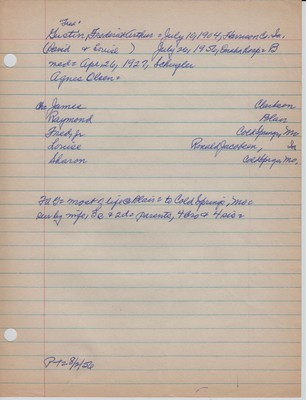 "Fred"
Gustin, Frederick Arthur = July 10, 1904, Harrison Co. Ia.
(David & Louise) July 26, 1956, Omaha hosp = B
md = Apr. 26, 1927, Schuyler
Agnes Olsen =
Ch. James Clarkson
Raymond Blair
Fred, jr Cold Springs, Mo
Louise Ronald Jacobsen, Ia
Sharon Cold Spgs, Mo.
most of life @ Blair = to Cold Springs, Mo =
Sur by wife, 3 s & 2 d = parents, 4 bro & 4 sis =